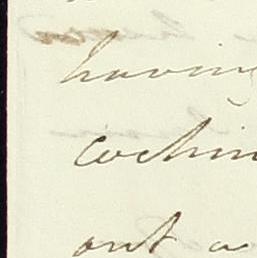 having
cochin
out a